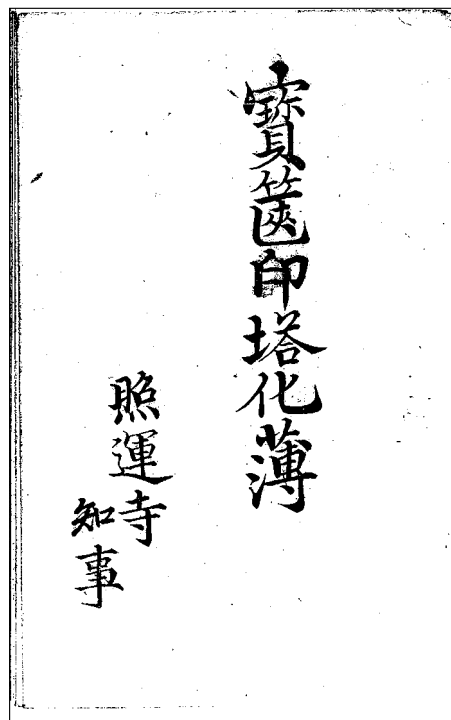 寳篋印塔化薄
照運寺
知事